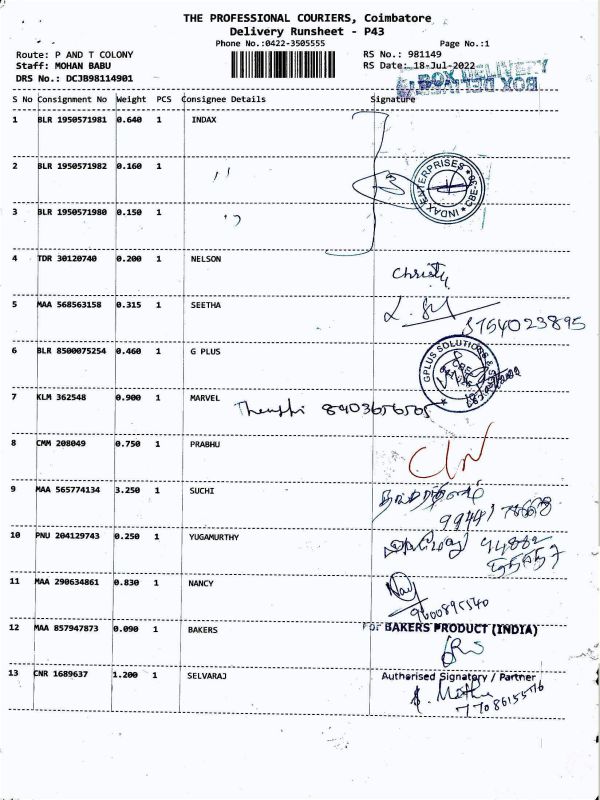 THE PROFESSIONAL COURIERS, Coimbatore
Delivery Runsheet - P43
Phone No.:0422-3505555
Page No.:1
Route: P AND T COLONY
RS No.: 981149
Staff: MOHAN BABU
RS Date: 18-Jul-2022
DRS No.: DCJB98114901
BOX DELIVERY
BOX DELIVERY
S No Consignment No Weight PCS Consignee Details Signature
1 BLR 1950571981 0.640 1 INDAX
2 BLR 1950571982 0.160 1 ,,
INDAX ENTERPRISES * CBE-38 *
3 BLR 1950571980 0.150 1 ,,
4 TDR 30120740 0.200 1 NELSON
Christy
5 MAA 568563158 0.315 1 SEETHA
8754023895
6 BLR 8500075254 0.460 1 G PLUS
GPLUS SOLUTIONS
7 KLM 362548 0.900 1 MARVEL
8903656505
8 CMM 208049 0.750 1 PRABHU
9 MAA 565774134 3.250 1 SUCHI
10 PNU 204129743 0.250 1 YUGAMURTHY
11 MAA 290634861 0.830 1 NANCY
9600895540
12 MAA 857947873 0.090 1 BAKERS
For BAKERS PRODUCT (INDIA)
13 CNR 1689637 1.200 1 SELVARAJ
Authorised Signatory / Partner